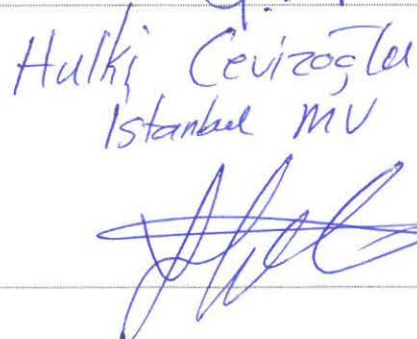 Hulki Cevizoğlu
İstanbul MV